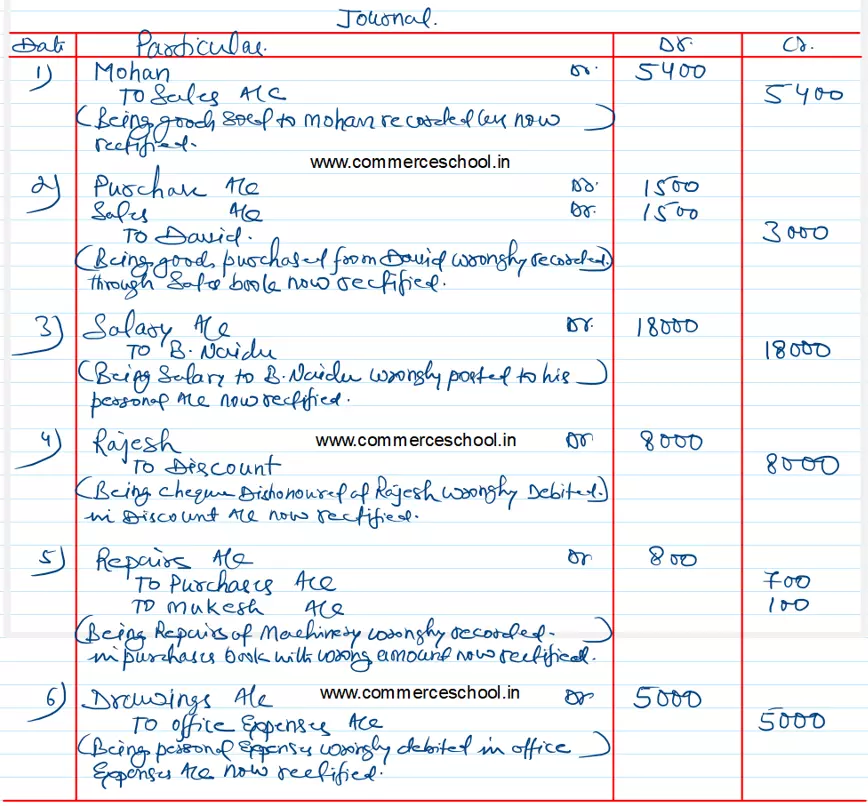 Journal.
Date Particular. Dr. Cr.
1) Mohan Dr. 5400
To Sales A/C 5400
(Being goods sold to Mohan recorded less now
rectified.)
www.commerceschool.in
2) Purchase A/c Dr. 1500
Sales A/c Dr. 1500
To David. 3000
(Being goods purchased from David wrongly recorded)
through Sales book now rectified.
3) Salary A/c Dr. 18000
To B. Naidu 18000
(Being Salary to B. Naidu wrongly posted to his)
personal A/c now rectified.
4) Rajesh www.commerceschool.in Dr 8000
To Discount 8000
(Being Cheque Dishonoured of Rajesh wrongly Debited.)
in Discount A/c now rectified.
5) Repairs A/c Dr 800
To Purchases A/c 700
To Mukesh A/c 100
(Being Repairs of Machinery wrongly recorded.)
in purchases book with wrong amount now rectified.
6) Drawings A/c www.commerceschool.in Dr 5000
To office Expenses A/c 5000
(Being personal Expenses wrongly debited in office)
Expenses A/c now rectified.